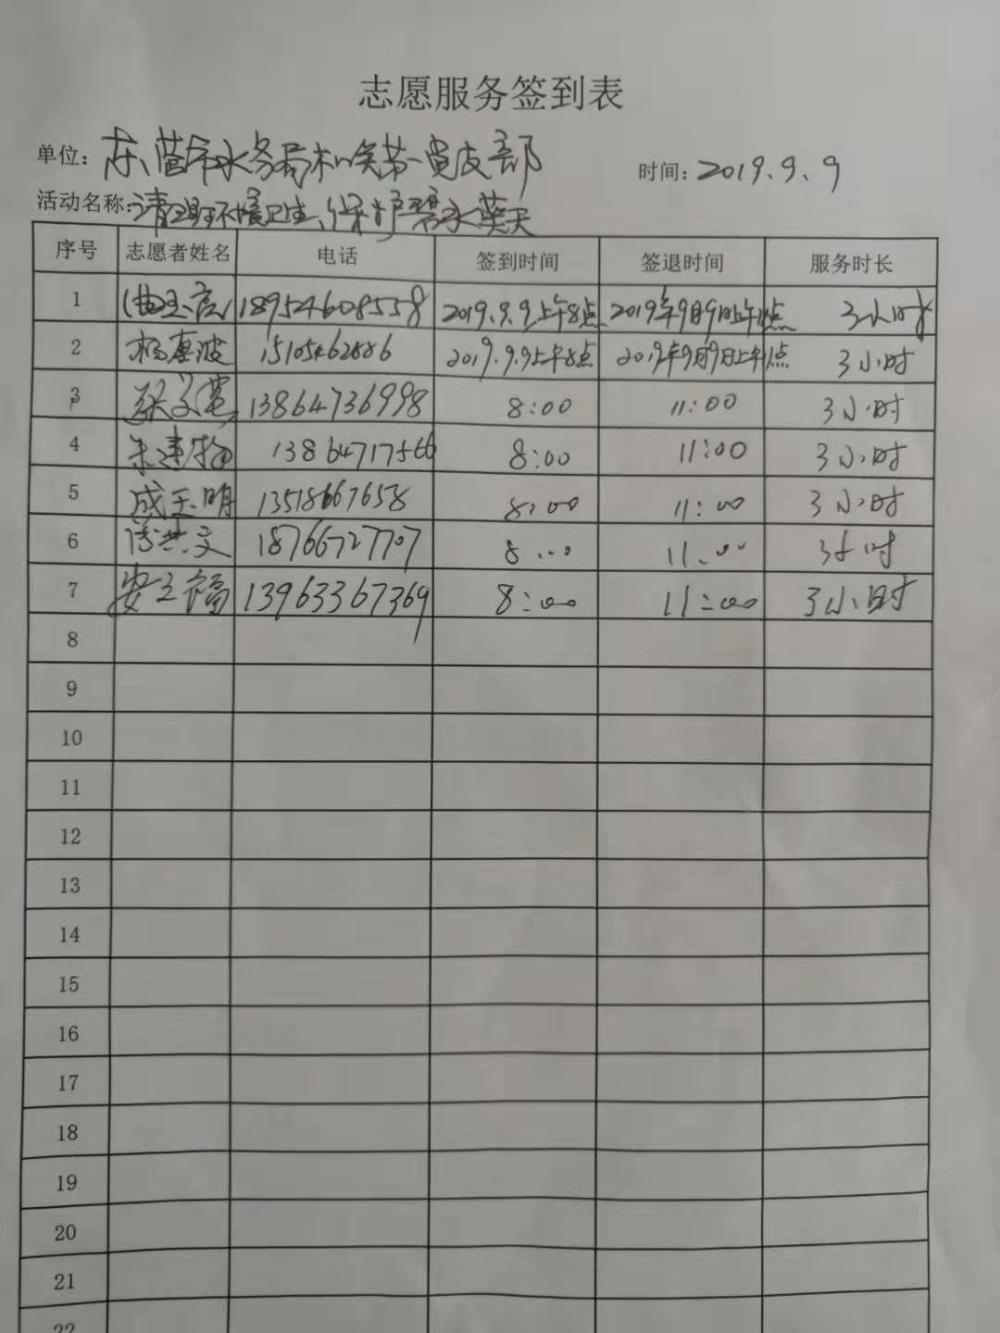 志愿服务签到表
单位: 东营市水务局机关第一党支部 时间: 2019.9.9
活动名称: 清理环境卫生、保护碧水蓝天
序号 志愿者姓名 电话 签到时间 签退时间 服务时长
1 18954608558 2019.9.9上午8点 2019年9月9日上午11点 3小时
2 杨惠波 15105462886 2019.9.9上午8点 2019年9月9日上午11点 3小时
3 13864736998 8:00 11:00 3小时
4 朱建 13864717566 8:00 11:00 3小时
5 成玉明 13518667658 8:00 11:00 3小时
6 洪文 18766727707 8:00 11:00 3小时
7 安立福 13963367369 8:00 11:00 3小时
8
9
10
11
12
13
14
15
16
17
18
19
20
21
22